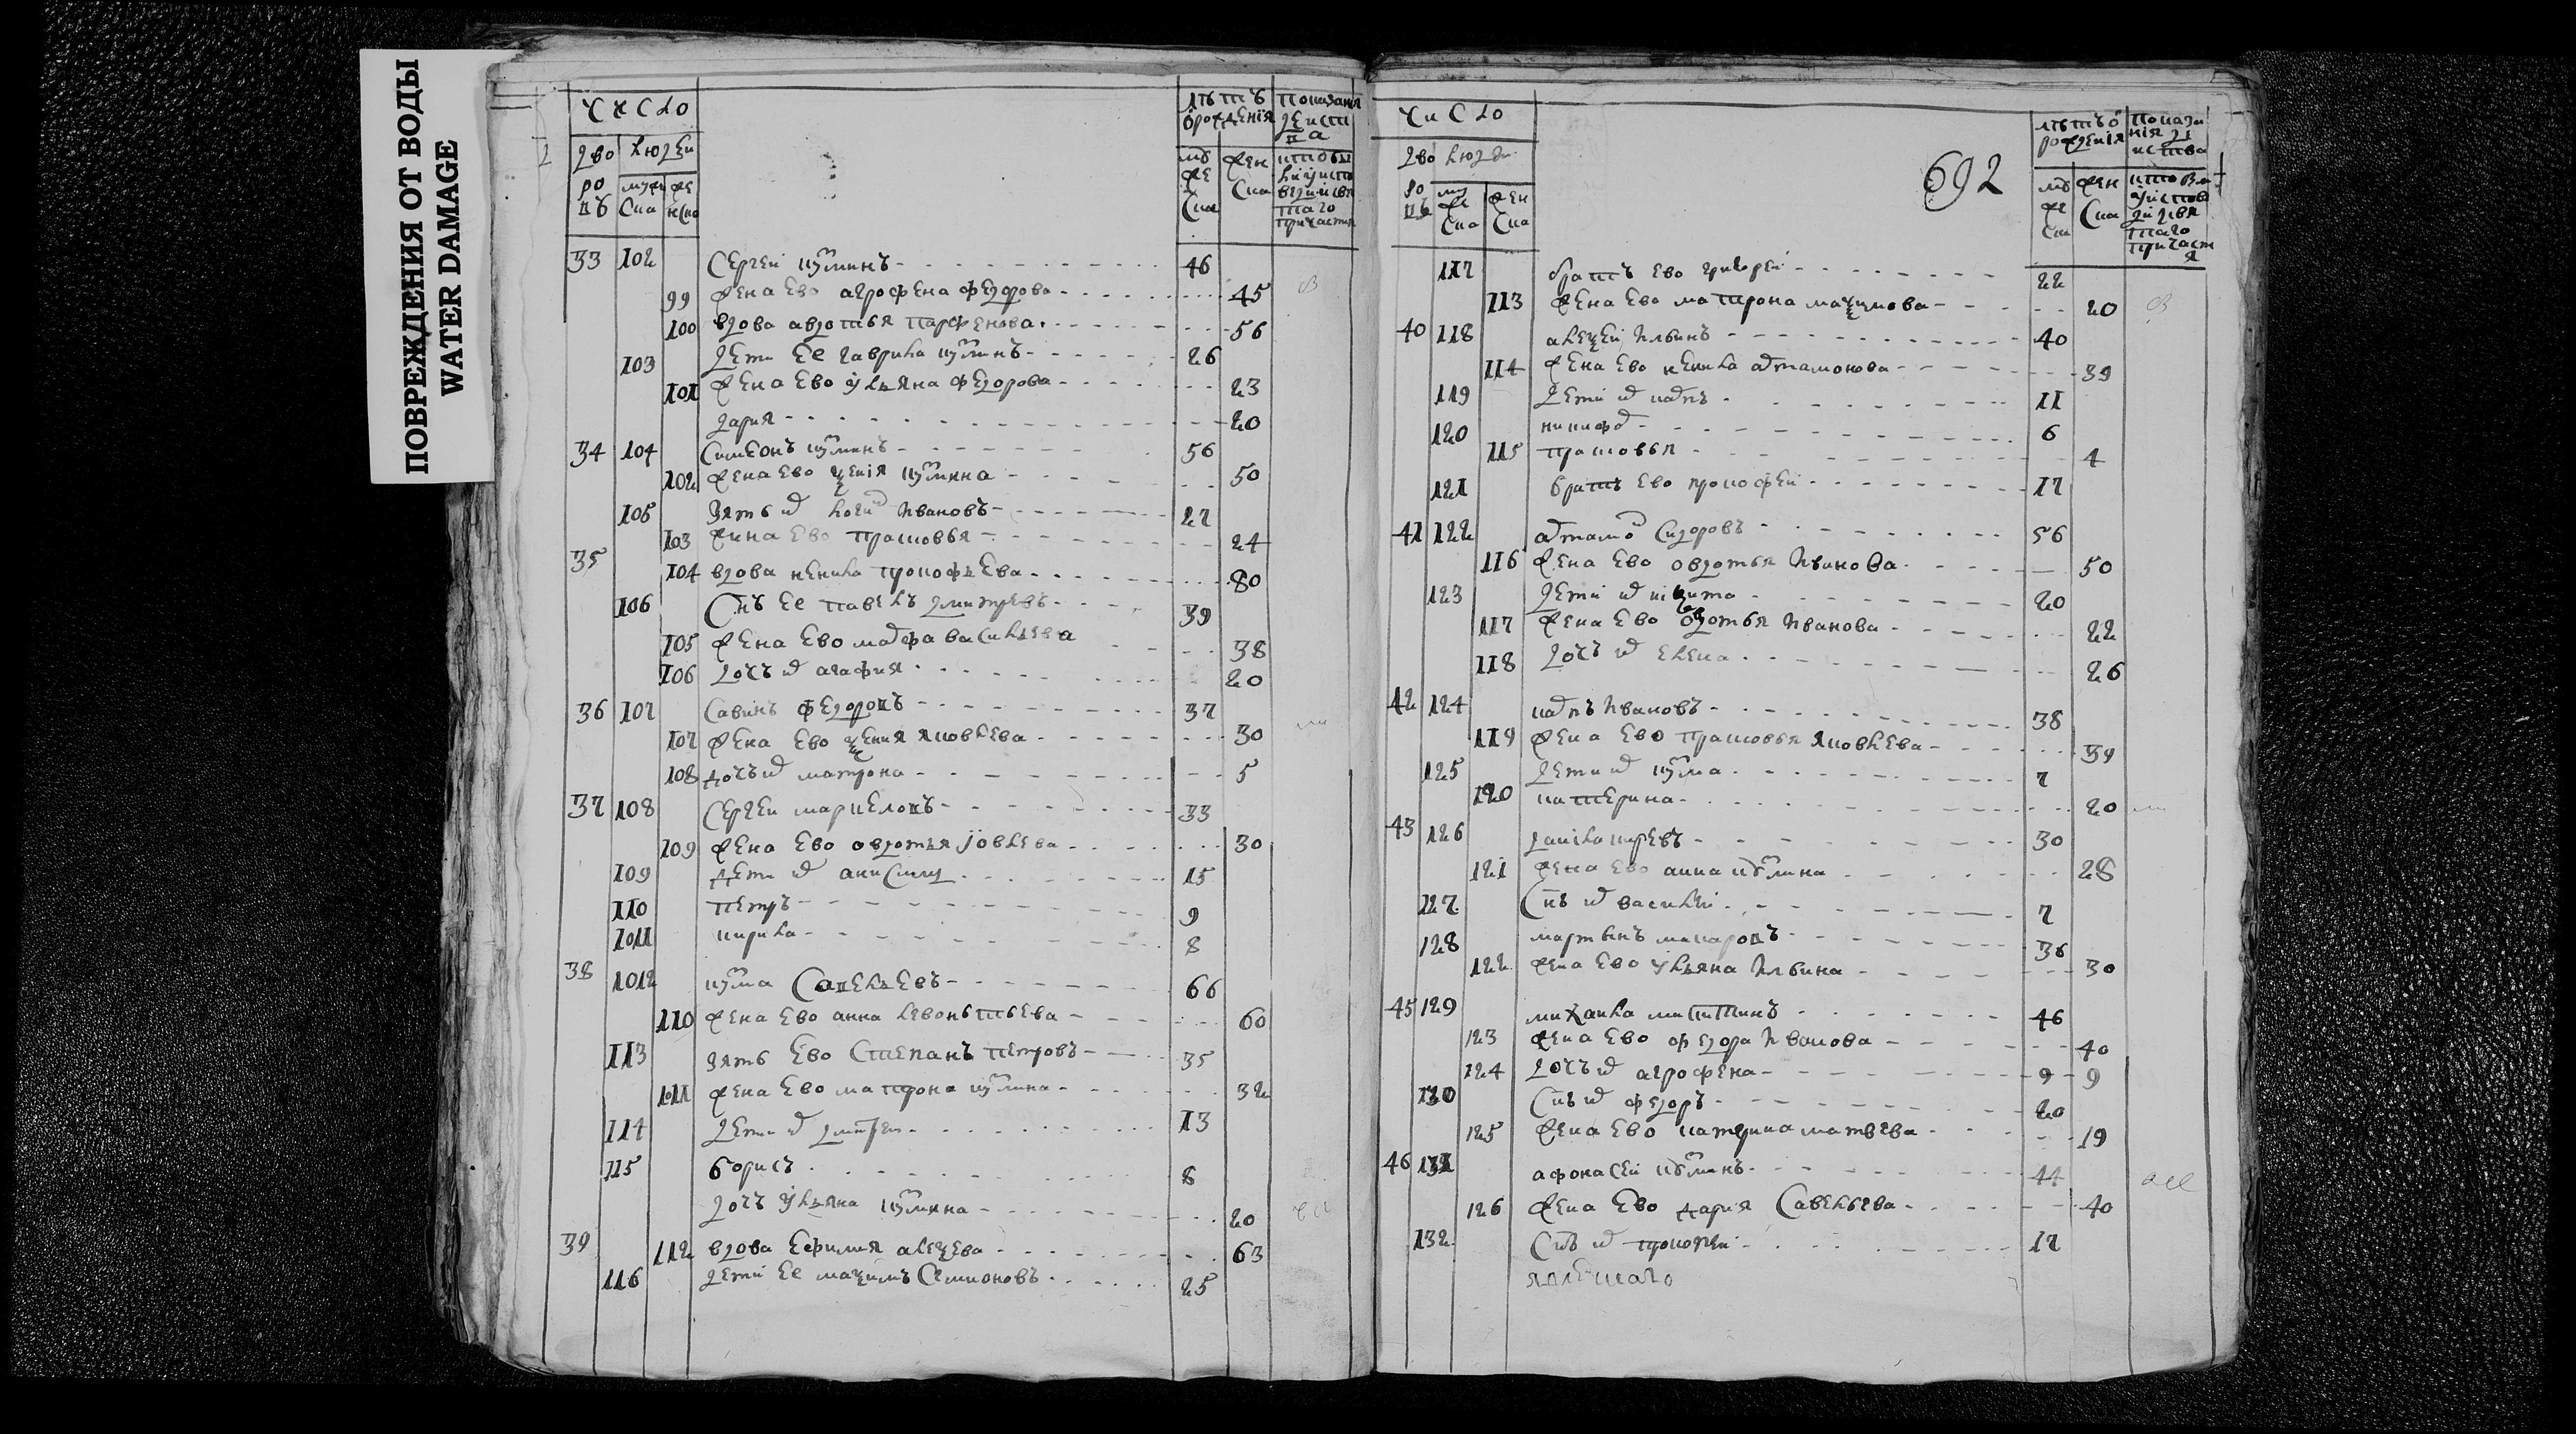 ПОВРЕЖДЕНИЯ ОТ ВОДЫ
WATER DAMAGE
число
лѣтъ ѿ рожденія
показанія дѣиства
дворовъ
людеи
мужеска
женска
33 102 Сергеи кузминъ 46
99 жена ево агрофена федорова 45
100 вдова авдотья парфенова 56
103 дети ее гаврила кузминъ 26
101 жена ево ульяна федорова 23
дария 20
34 104 Симеонъ кузминъ 56
102 жена ево ксения кузмина 50
105 зять их Ивановъ 27
103 жина ево прасковья 24
35 104 вдова ненила прокофьева 80
106 Снъ ее павелъ дмитревъ 39
105 жена ево марфа васильева 38
106 дочь их агафия 20
36 107 Савинъ федоровъ 37
107 жена ево ксения яковлева 30
108 дочь их матрона 5
37 108 Сергеи маркеловъ 33
109 жена ево овдотья іовлева 30
109 дети их анисим 15
110 петръ 9
1011 кирила 8
38 1012 кузма Савельевъ 66
110 жена ево анна левонтьева 60
113 зять ево Степанъ петровъ 35
1011 жена ево матрона кузмина 32
114 дети их дмитреи 13
115 борисъ 8
дочь ульяна кузмина 20
39 112 вдова ефимия алексева 63
116 дети ее максимъ Семионовъ 25
692
число
лѣтъ ѿ рожденія
показанія дѣиства
дворовъ
людеи
мужеска
женска
117 братъ ево григореи 22
113 жена ево матрона максимова 20
40 118 алексеи Ильинъ 40
114 жена ево ненила артамонова 39
119 дети их карпъ 11
120 никифор 6
115 прасковья 4
121 братъ ево прокофеи 17
41 122 артамон Сидоровъ 56
116 жена ево овдотья Иванова 50
123 дети их никита 20
117 жена ево овдотья Иванова 22
118 дочь их елена 26
42 124 карпъ Ивановъ 38
119 жена ево прасковья яковлева 39
125 дети их кузма 7
120 катерина 20
43 126 данила киревъ 30
121 жена ево анна кузмина 28
127 Снъ их василеи 7
128 мартинъ макаровъ 36
122 жена ево ульяна Ильина 30
45 129 михаила микитинъ 46
123 жена ево федора Иванова 40
124 дочь их агрофена 9 9
130 Снъ их федоръ 20
125 жена ево катерина матвева 19
46 131 афонасеи кузминъ 44
126 жена ево дария Савельева 40
132 Снъ их прокофеи 17